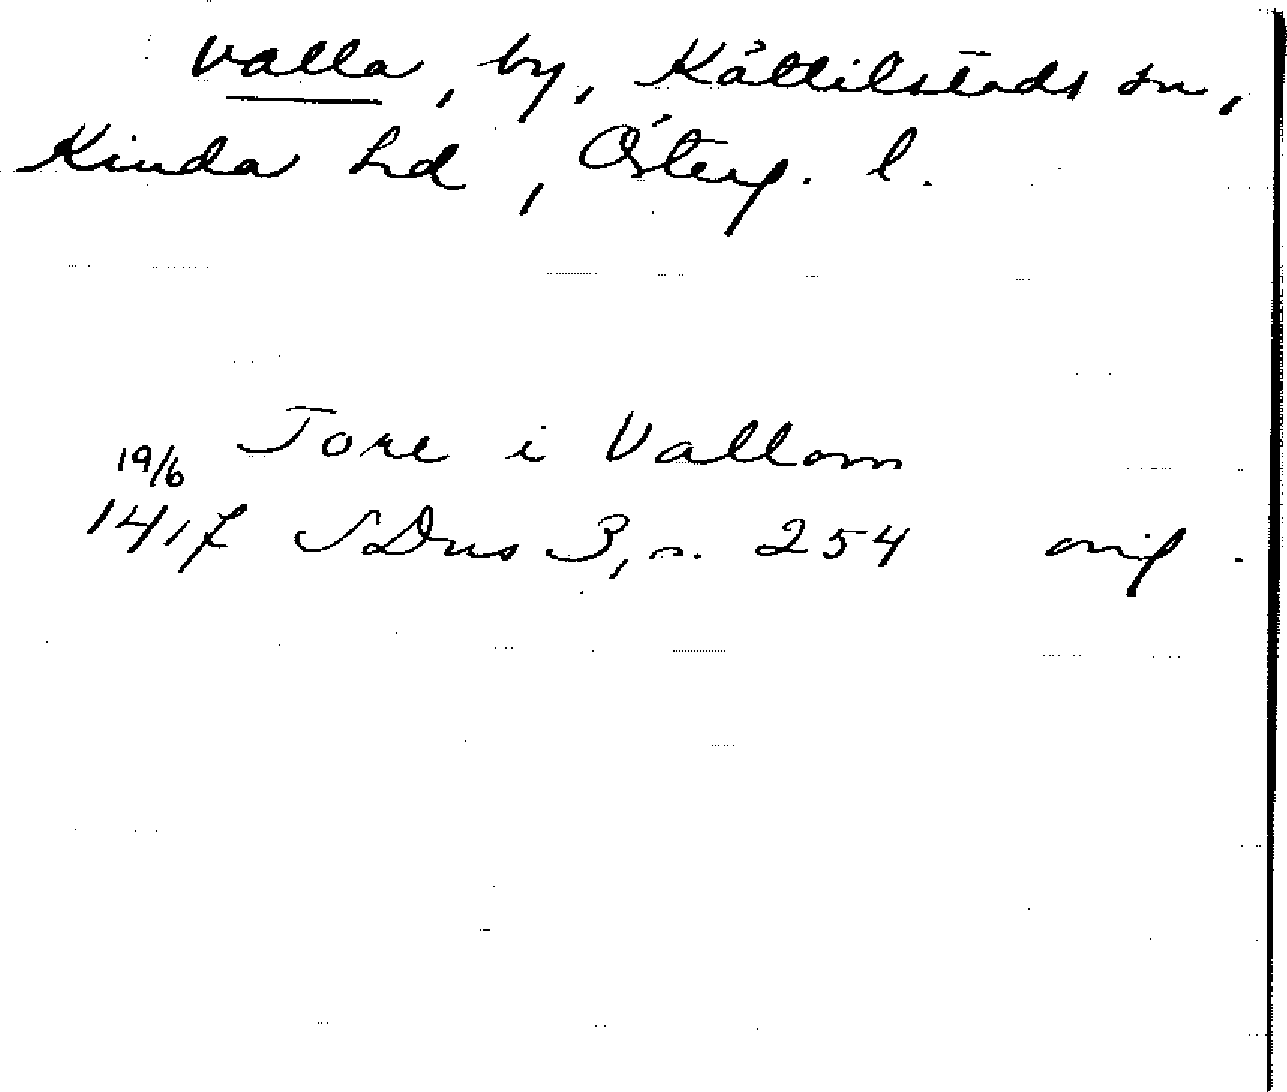 Valla, by, Kättilstads sn,
Kinda hd, Österg. l.
Tore i Vallom
19/6
1417 SDns 3, s. 254 orig.